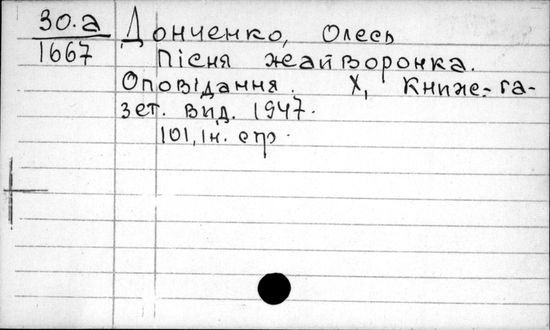 30.а
1667
Донченко, Олесь
Пісня жайворонка.
Оповідання. Х, Книж.-га-
зет. вид. 1947.
101, Ін. стр.